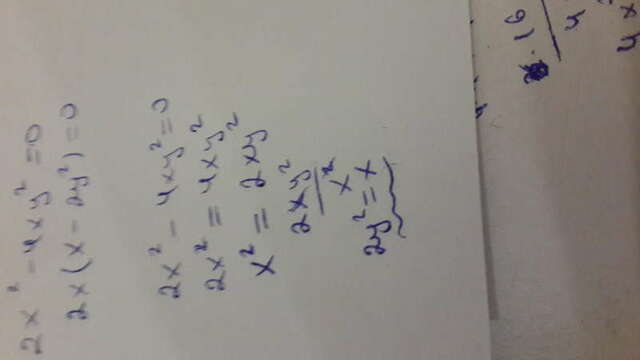 2x² - 4xy² = 0
2x(x - 2y²) = 0
2x² - 4xy² = 0
2x² = 4xy²
x² = 2xy²
2xy²
x²
2y² = x
. 16
4
4x